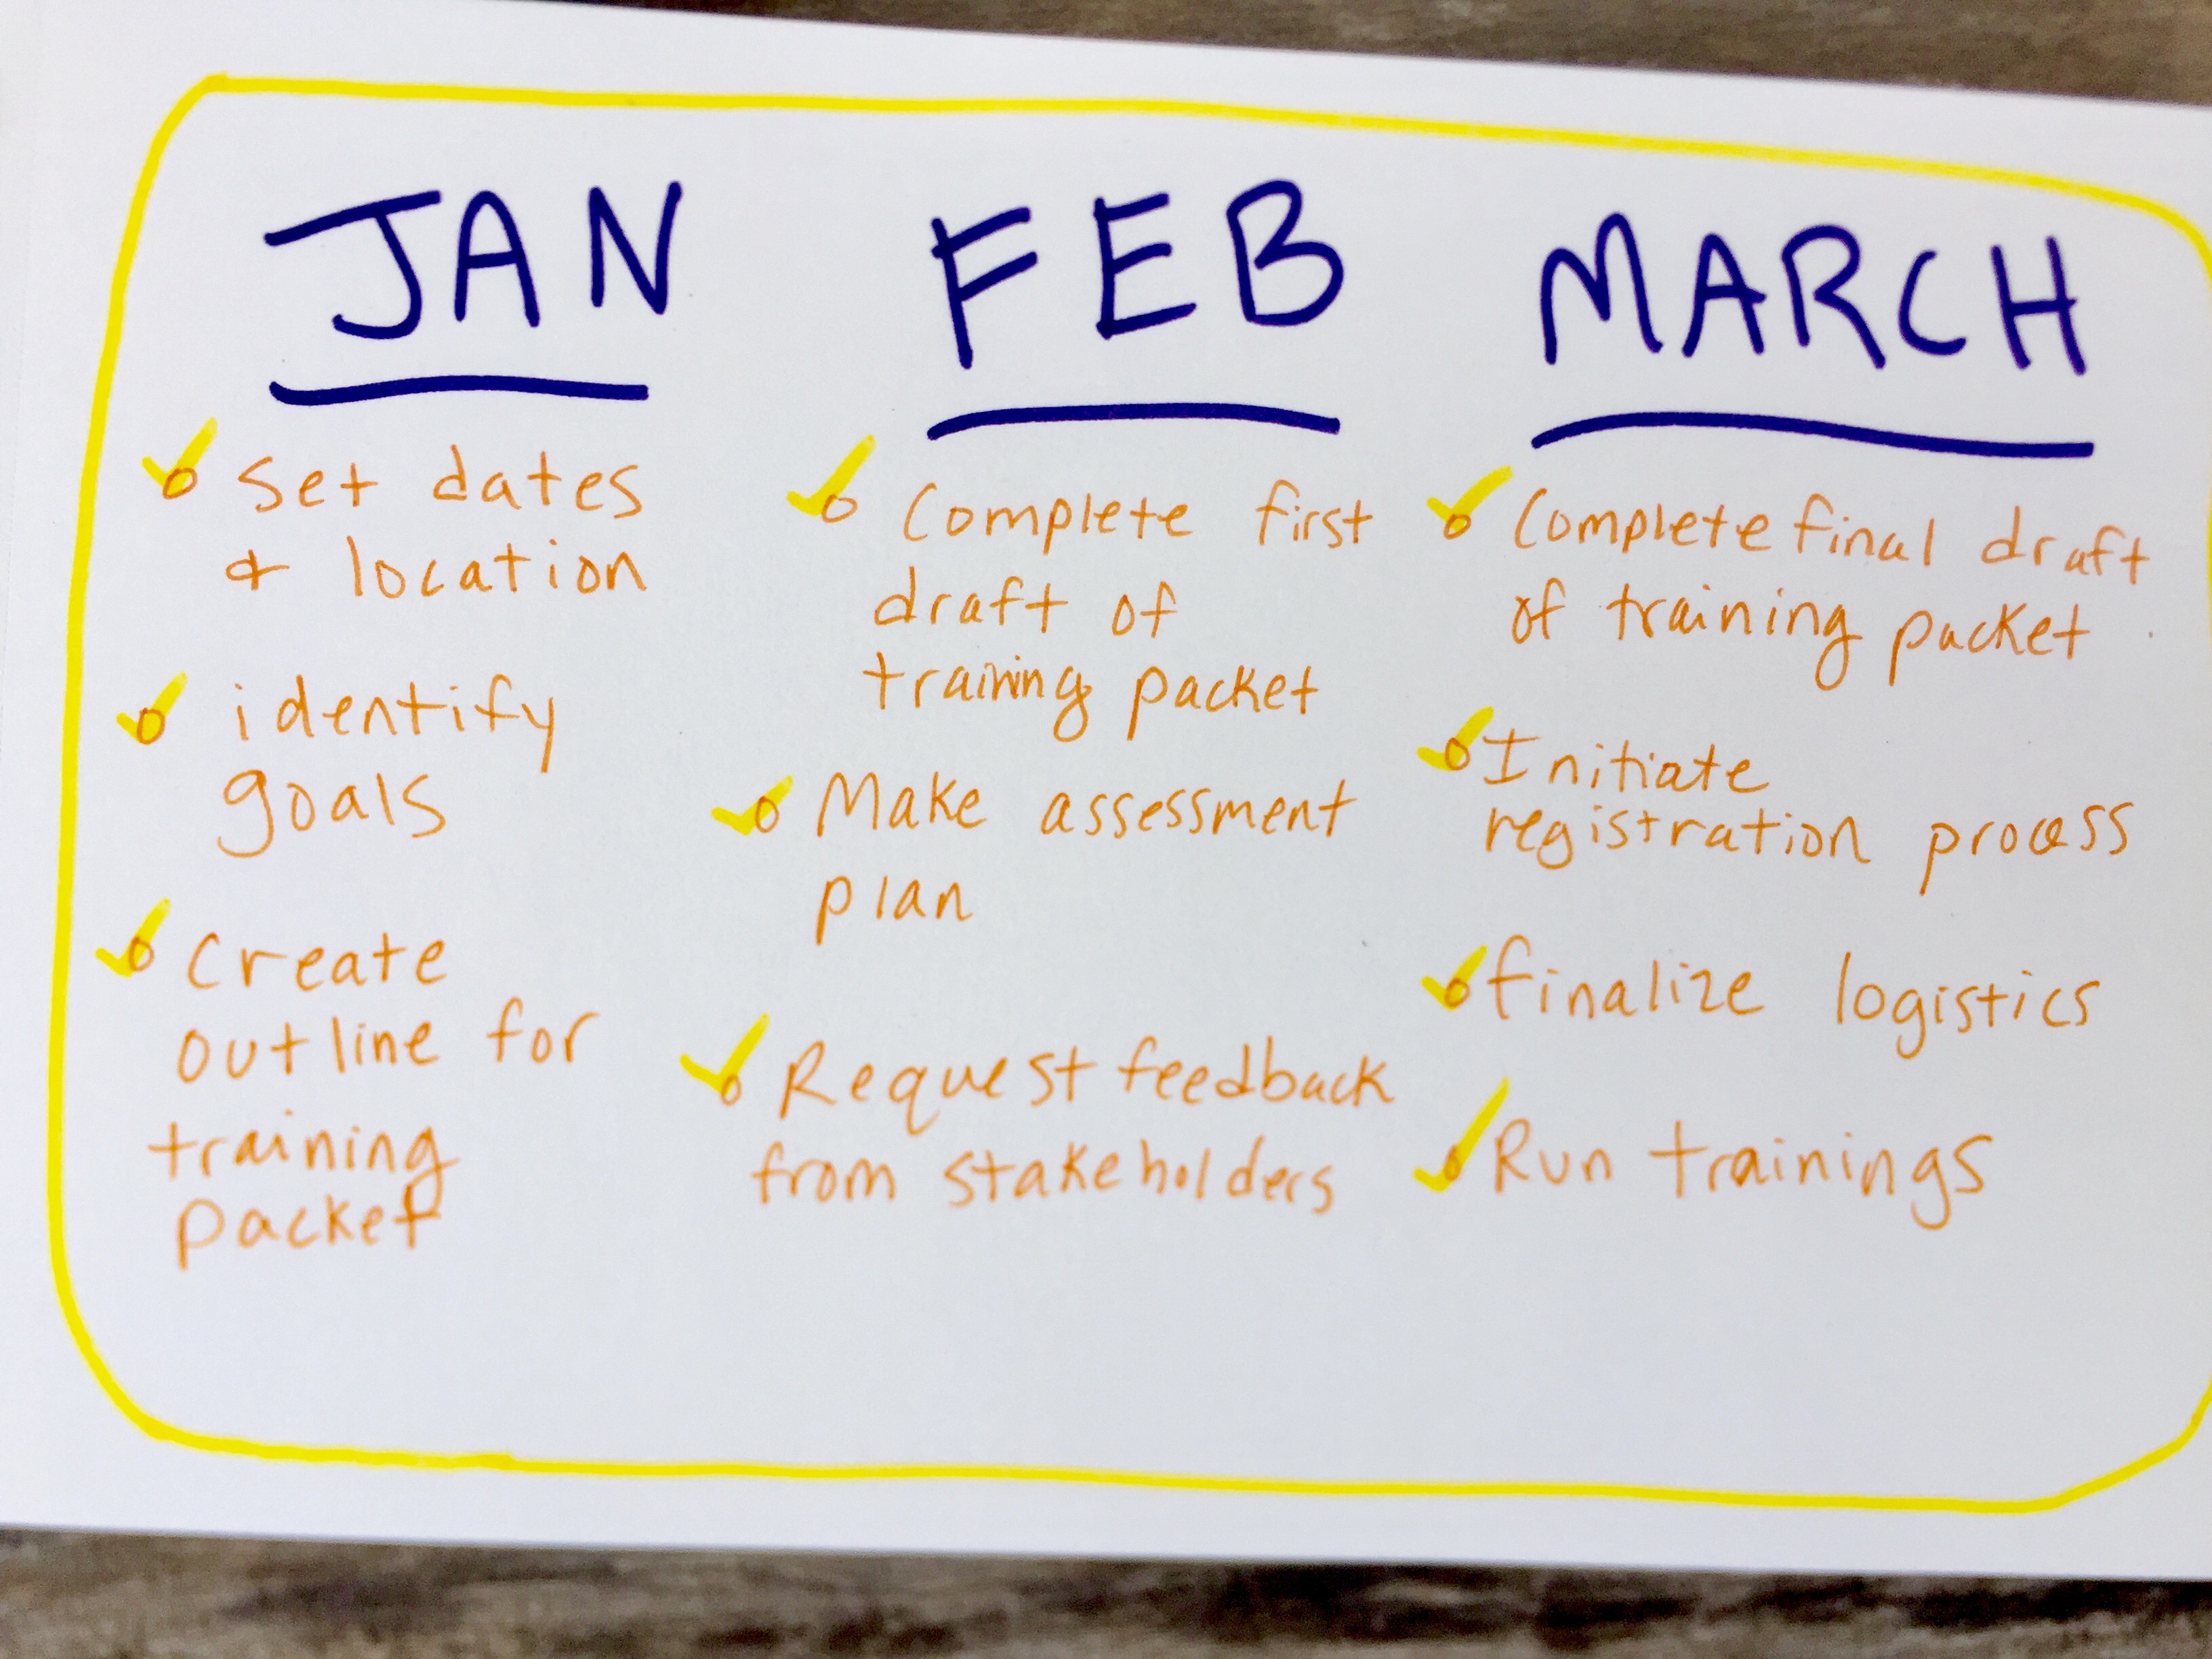 JAN
set dates
& location
identify
goals
create
outline for
training
packet
FEB
Complete first
draft of
training packet
Make assessment
plan
Request feedback
from stakeholders
MARCH
Complete final draft
of training packet
Initiate
registration process
finalize logistics
Run trainings